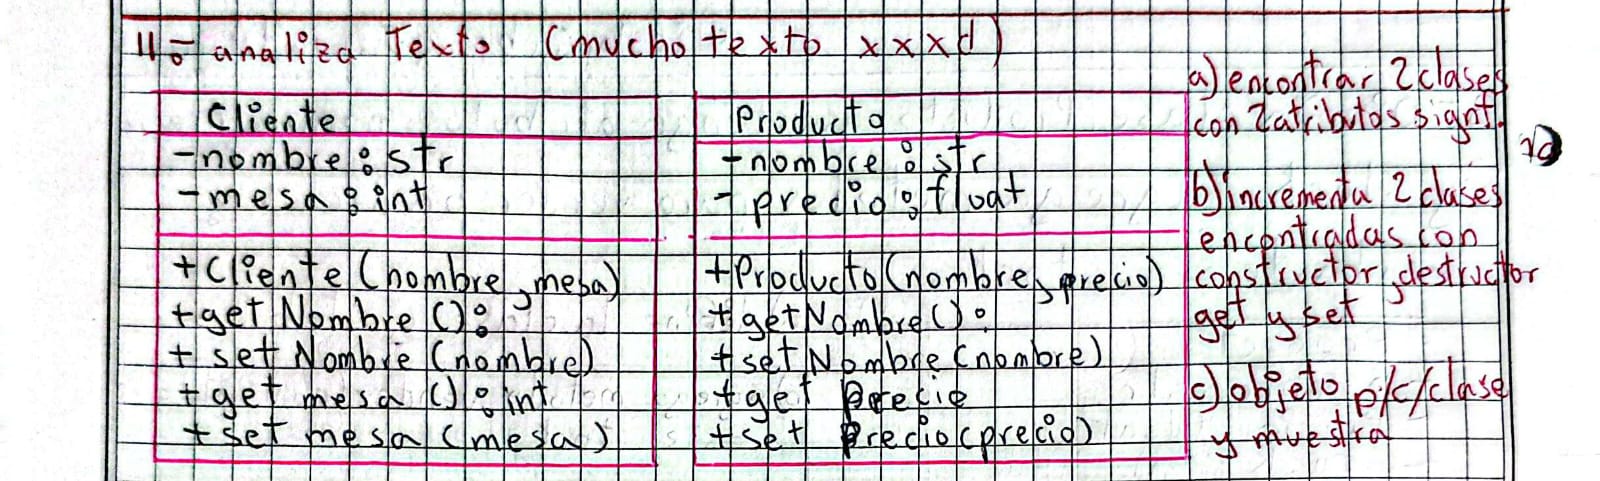 11.- analiza Texto (mucho texto xxxd)
Cliente
- nombre : str
- mesa : int
+ Cliente (nombre, mesa)
+ get Nombre () :
+ set Nombre (nombre)
+ get mesa () : int
+ set mesa (mesa)
Producto
- nombre : str
- precio : float
+ Producto (nombre, precio)
+ getNombre () :
+ set Nombre (nombre)
+ get Precio
+ set Precio (precio)
a) encontrar 2 clases
con 2 atributos signf.
b) incrementa 2 clases
encontradas con
constructor, destructor
get y set
c) objeto p/c/clase
y muestra